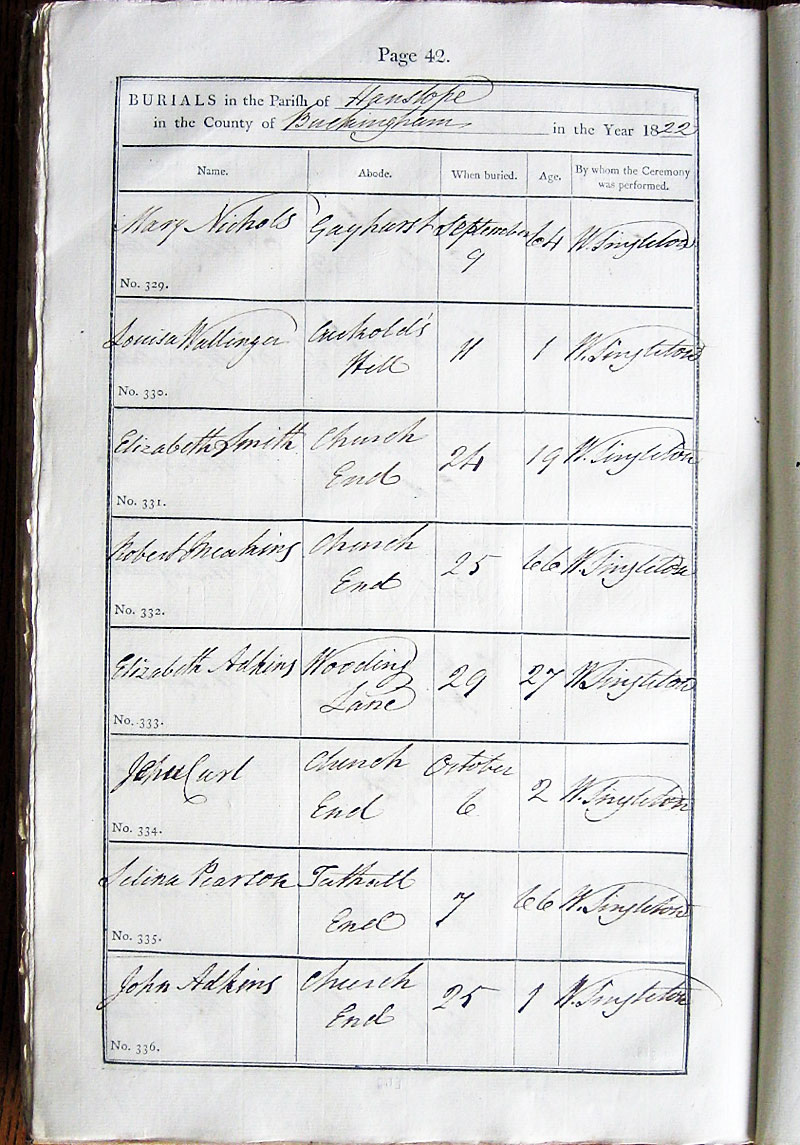 Page 42.
BURIALS in the Parish of Hanslope
in the County of Buckingham in the Year 1822
Name. Abode. When buried. Age. By whom the Ceremony was performed.
Mary Nichols Gayhurst September 9 64 W. Singleton
No. 329.
Louisa Wallinger Cuckold's Hill 11 1 W. Singleton
No. 330.
Elizabeth Smith Church End 24 19 W. Singleton
No. 331.
Robert Meakins Church End 25 66 W. Singleton
No. 332.
Elizabeth Adkins Wooding Lane 29 27 W. Singleton
No. 333.
Curl Church End October 6 2 W. Singleton
No. 334.
Selina Pearson Tathall End 7 66 W. Singleton
No. 335.
John Adkins Church End 25 1 W. Singleton
No. 336.